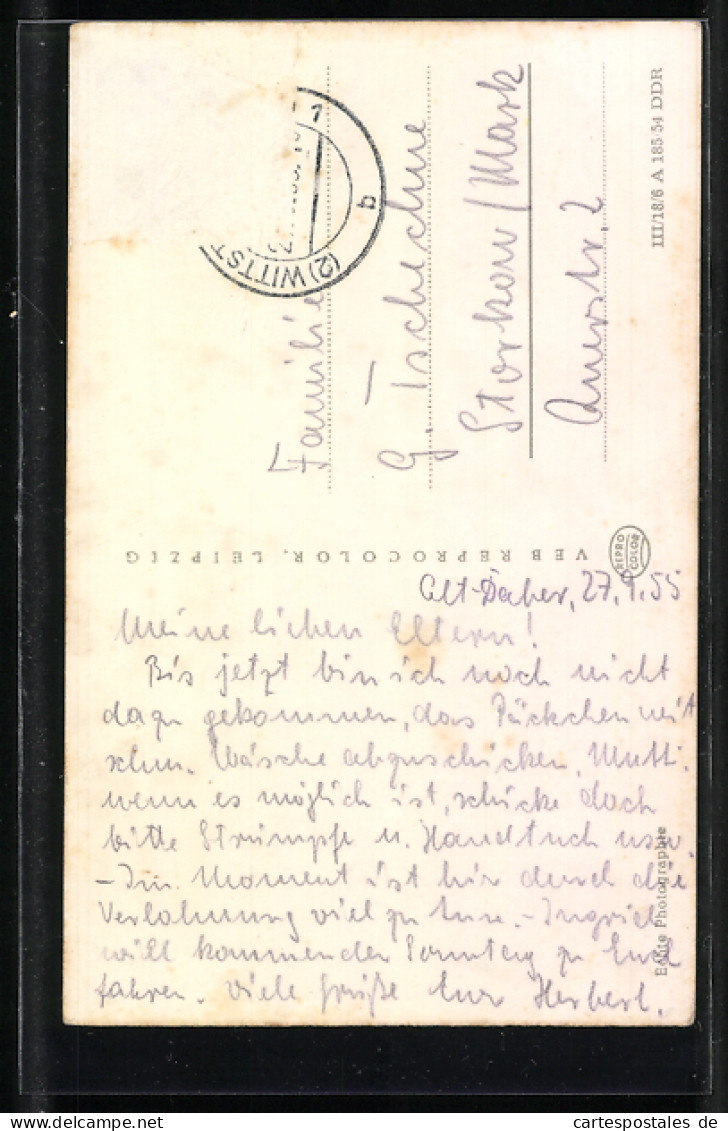 Alt-Daber, 27.9.55
Meine lieben Eltern!
Bis jetzt bin ich noch nicht
dazu gekommen, das Päckchen mit
schm. Wäsche abzuschicken. Mutti,
wenn es möglich ist, schicke doch
bitte Strümpfe u. Handtuch usw.
– Im Moment ist hir durch die
viel zu tun. – Ingrid
will kommenden Sonntag zu Euch
fahren. Viele Grüße Eur Herbert.
Familie
G. Tschechne
Storkow/Mark
2
(2) WITTST
1
b
VEB REPROCOLOR, LEIPZIG
REPRO
COLOR
III/18/6 A 185/54 DDR
Echte Photographie
www.cartespostales.de